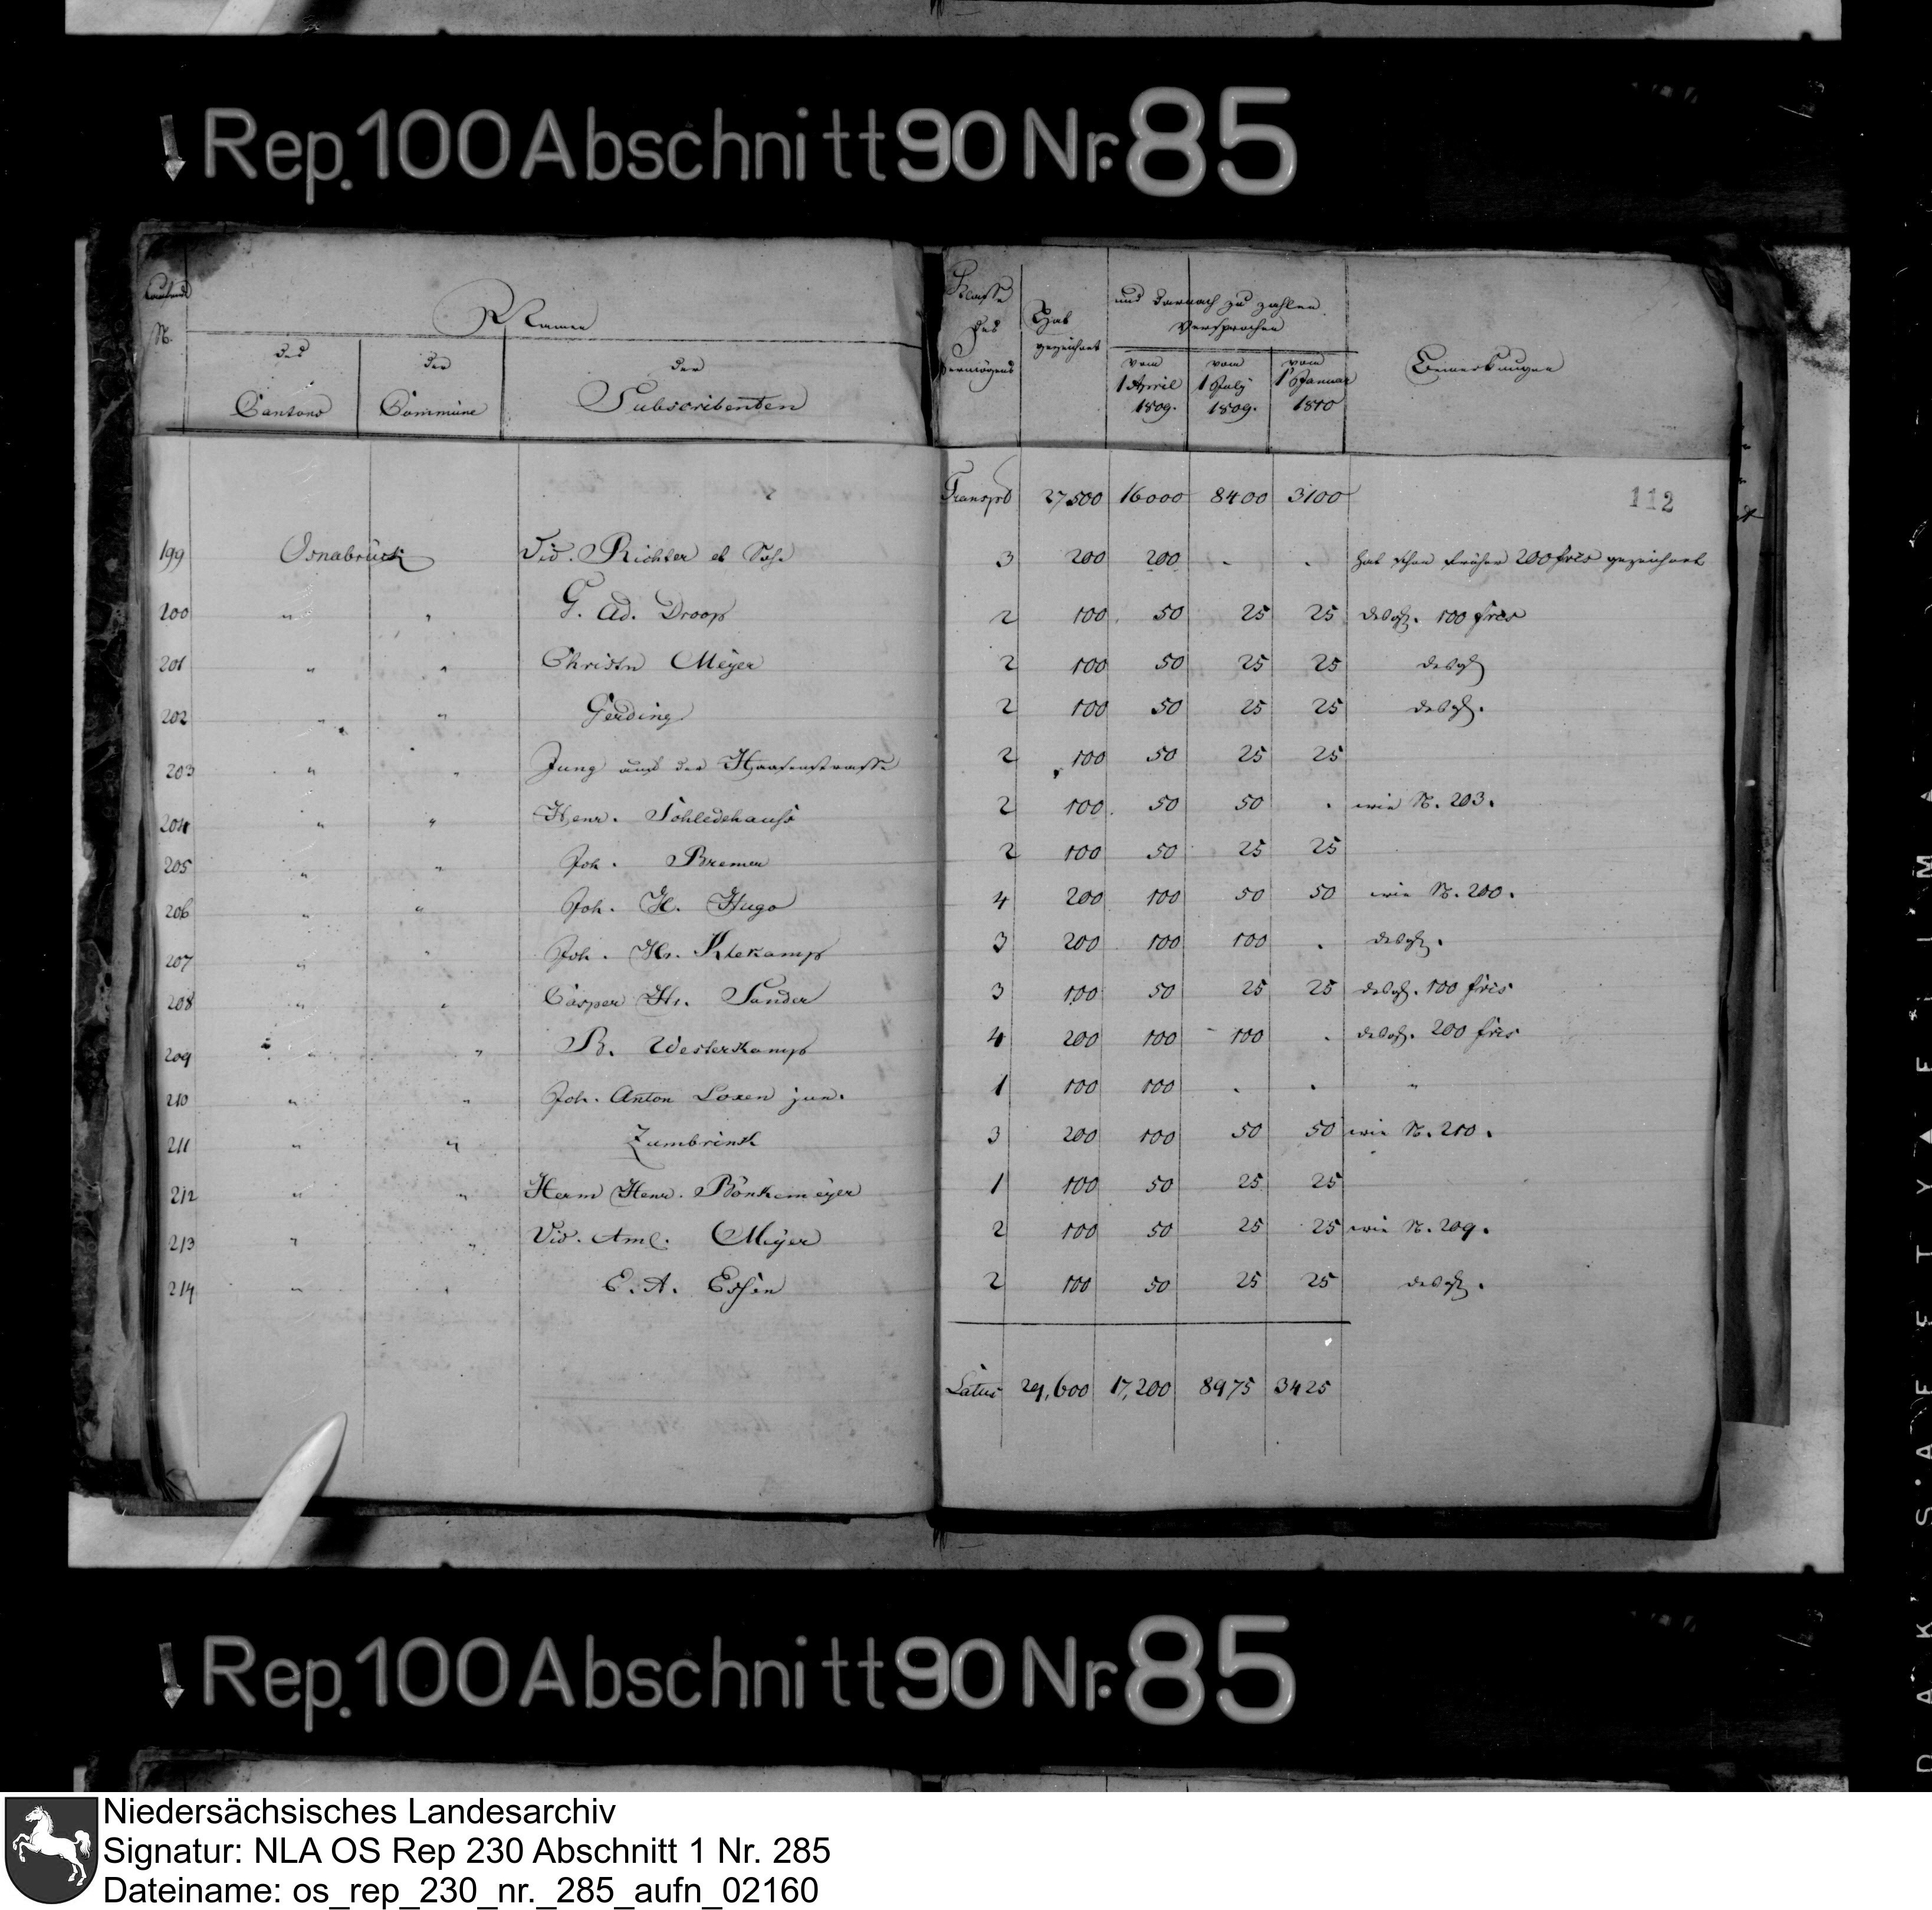 Rep. 100 Abschnitt 90 Nr. 85
Laufende N. Namen
des Cantons der Commüne der Subscribenten
Klasse des Vermögens Hat gezeichnet und darnach zu zahlen versprochen Bemerkungen
vom 1 April 1809. vom 1 July 1809. vom 1 Januar 1810
Transprt 27500 16000 8400 3100
112
199 Osnabrück Vid. Richter et 3 200 200 . . hat schon früher 200 frcs gezeichnet
200 " " G. Ad. Droop 2 100 50 25 25 desgl. 100 frcs
201 " " Christn Meyer 2 100 50 25 25 desgl
202 " " Gerding 2 100 50 25 25 desgl.
203 " " Jung auf der Haasenstrasse 2 100 50 25 25
204 " " Henr. Schledehauß 2 100 50 50 . wie N. 203.
205 " " Joh. Bremer 2 100 50 25 25
206 " " Joh. H. Hugo 4 200 100 50 50 wie N. 200.
207 " " Joh. Hr. Klekamp 3 200 100 100 . desgl.
208 " " Casper Hr. Sander 3 100 50 25 25 desgl. 100 frcs
209 " " B. Westerkamp 4 200 100 100 . desgl. 200 frcs
210 " " Joh. Anton Loxen jun. 1 100 100 . . "
211 " " Zumbrink 3 200 100 50 50 wie N. 210.
212 " " Herm Henr. Bönkemeyer 1 100 50 25 25
213 " " Vid. Aml. Meyer 2 100 50 25 25 wie N. 209.
214 " " E. A. Essen 2 100 50 25 25 desgl.
Latus 29,600 17,200 8975 3425
Rep. 100 Abschnitt 90 Nr. 85
Niedersächsisches Landesarchiv
Signatur: NLA OS Rep 230 Abschnitt 1 Nr. 285
Dateiname: os_rep_230_nr._285_aufn_02160